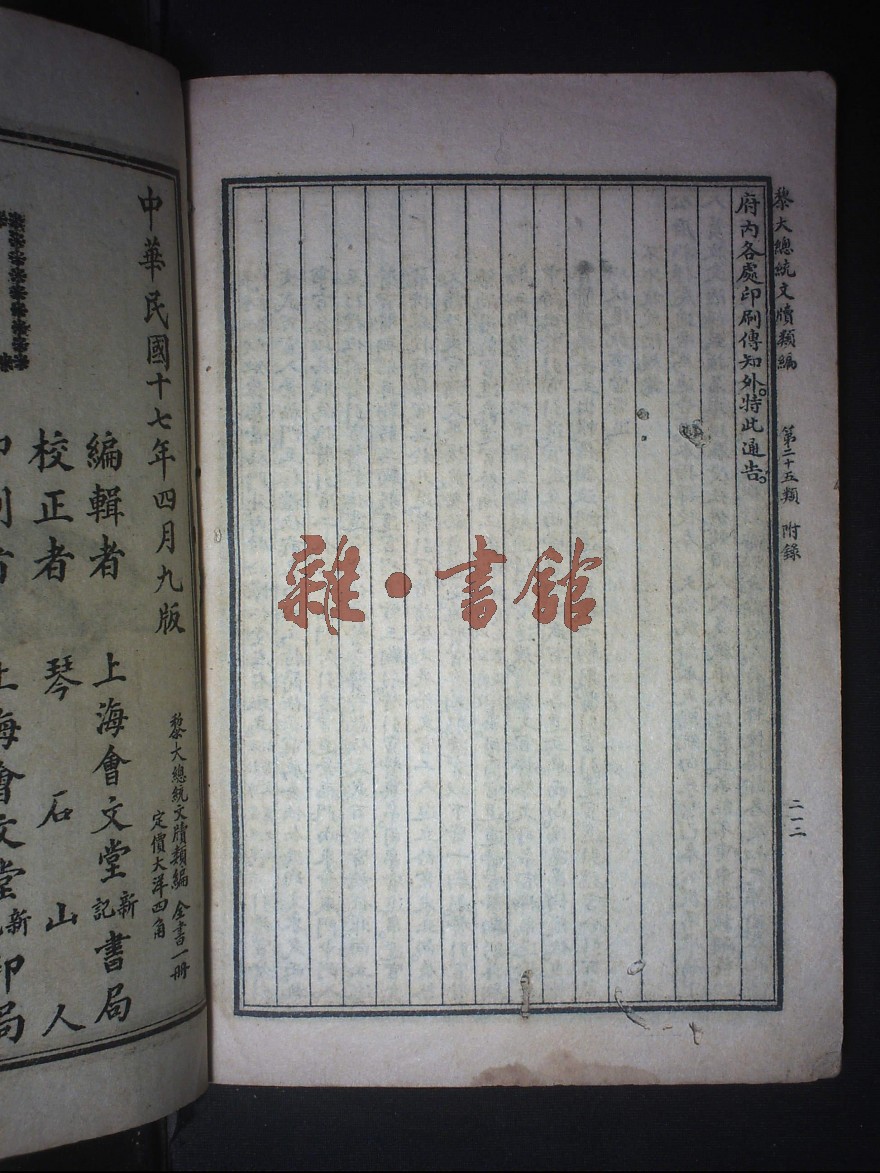 黎大總統文牘類編　第二十五類　附錄
二一二
府內各處印刷傳知外。特此通告。
雜・書館
黎大總統文牘類編　全書一册
定價大洋四角
中華民國十七年四月九版
編輯者　上海會文堂新記書局
校正者　琴石山人
印刷者　上海會文堂新記印局